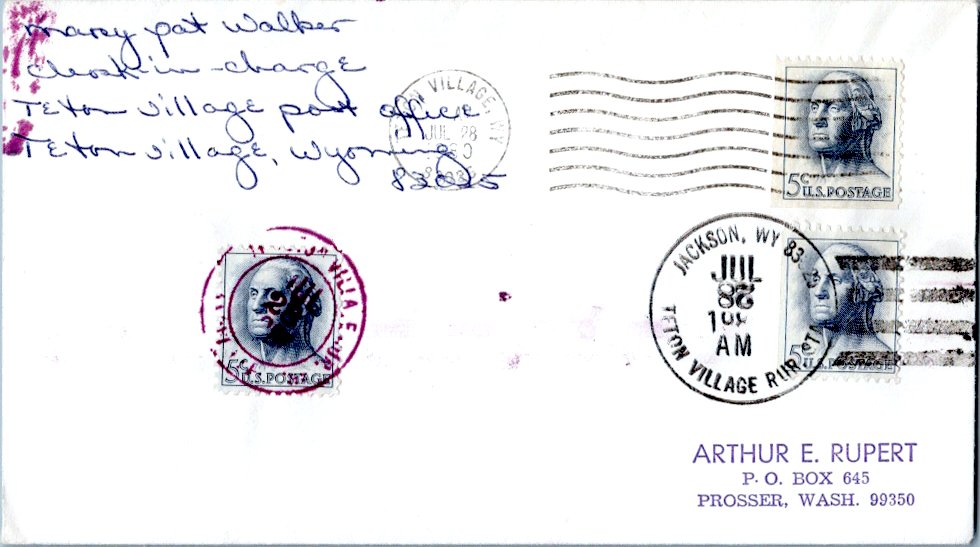 Mary Pat Walker
Clerk-in-charge
Teton Village post office
Teton Village, Wyoming
83025
VILLAGE, WY
JUL 28
5c U.S. POSTAGE
JACKSON, WY 83
JUL
28
AM
TETON VILLAGE RUR. STA
5c U.S. POSTAGE
5c U.S. POSTAGE
ARTHUR E. RUPERT
P. O. BOX 645
PROSSER, WASH. 99350